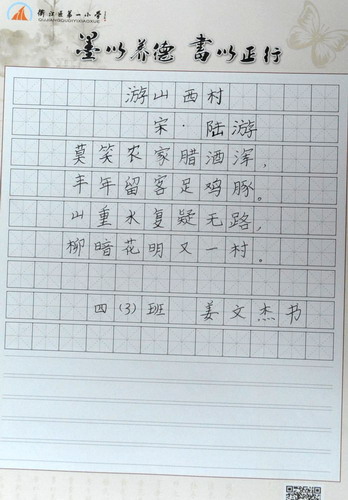 衢江区第一小学
QUJIANGQUDIYIXIAOXUE
墨以养德 書以正行
游山西村
宋·陆游
莫笑农家腊酒浑，
丰年留客足鸡豚。
山重水复疑无路，
柳暗花明又一村。
四（3）班 姜文杰书